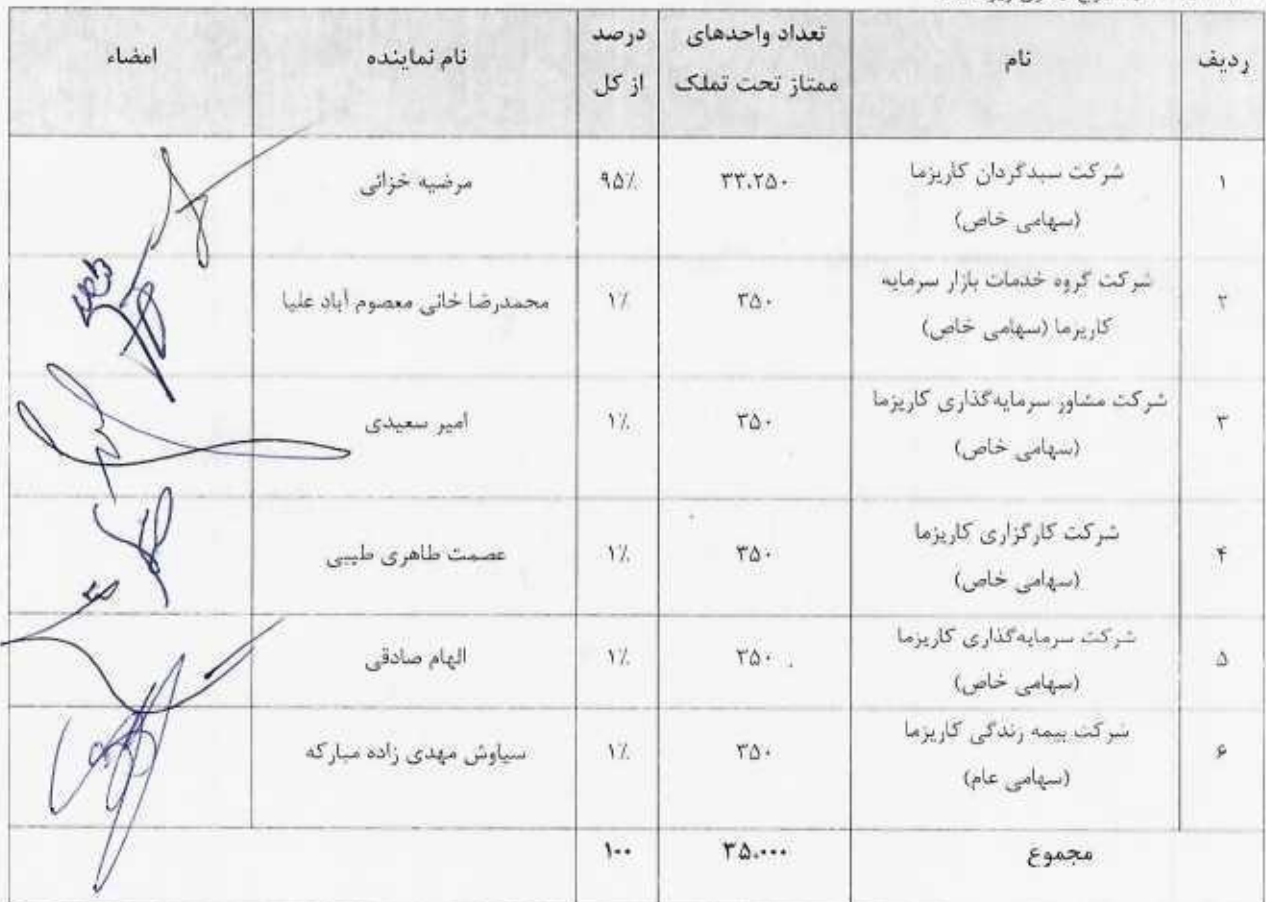 ردیف نام تعداد واحدهای ممتاز تحت تملک درصد از کل نام نماینده امضاء
۱ شرکت سبدگردان کاریزما (سهامی خاص) ۳۳،۲۵۰ ۹۵٪ مرضیه خزائی
۲ شرکت گروه خدمات بازار سرمایه کاریزما (سهامی خاص) ۳۵۰ ۱٪ محمدرضا خانی معصوم آباد علیا
۳ شرکت مشاور سرمایه‌گذاری کاریزما (سهامی خاص) ۳۵۰ ۱٪ امیر سعیدی
۴ شرکت کارگزاری کاریزما (سهامی خاص) ۳۵۰ ۱٪ عصمت طاهری طیبی
۵ شرکت سرمایه‌گذاری کاریزما (سهامی خاص) ۳۵۰ ۱٪ الهام صادقی
۶ شرکت بیمه زندگی کاریزما (سهامی عام) ۳۵۰ ۱٪ سیاوش مهدی زاده مبارکه
مجموع ۳۵،۰۰۰ ۱۰۰